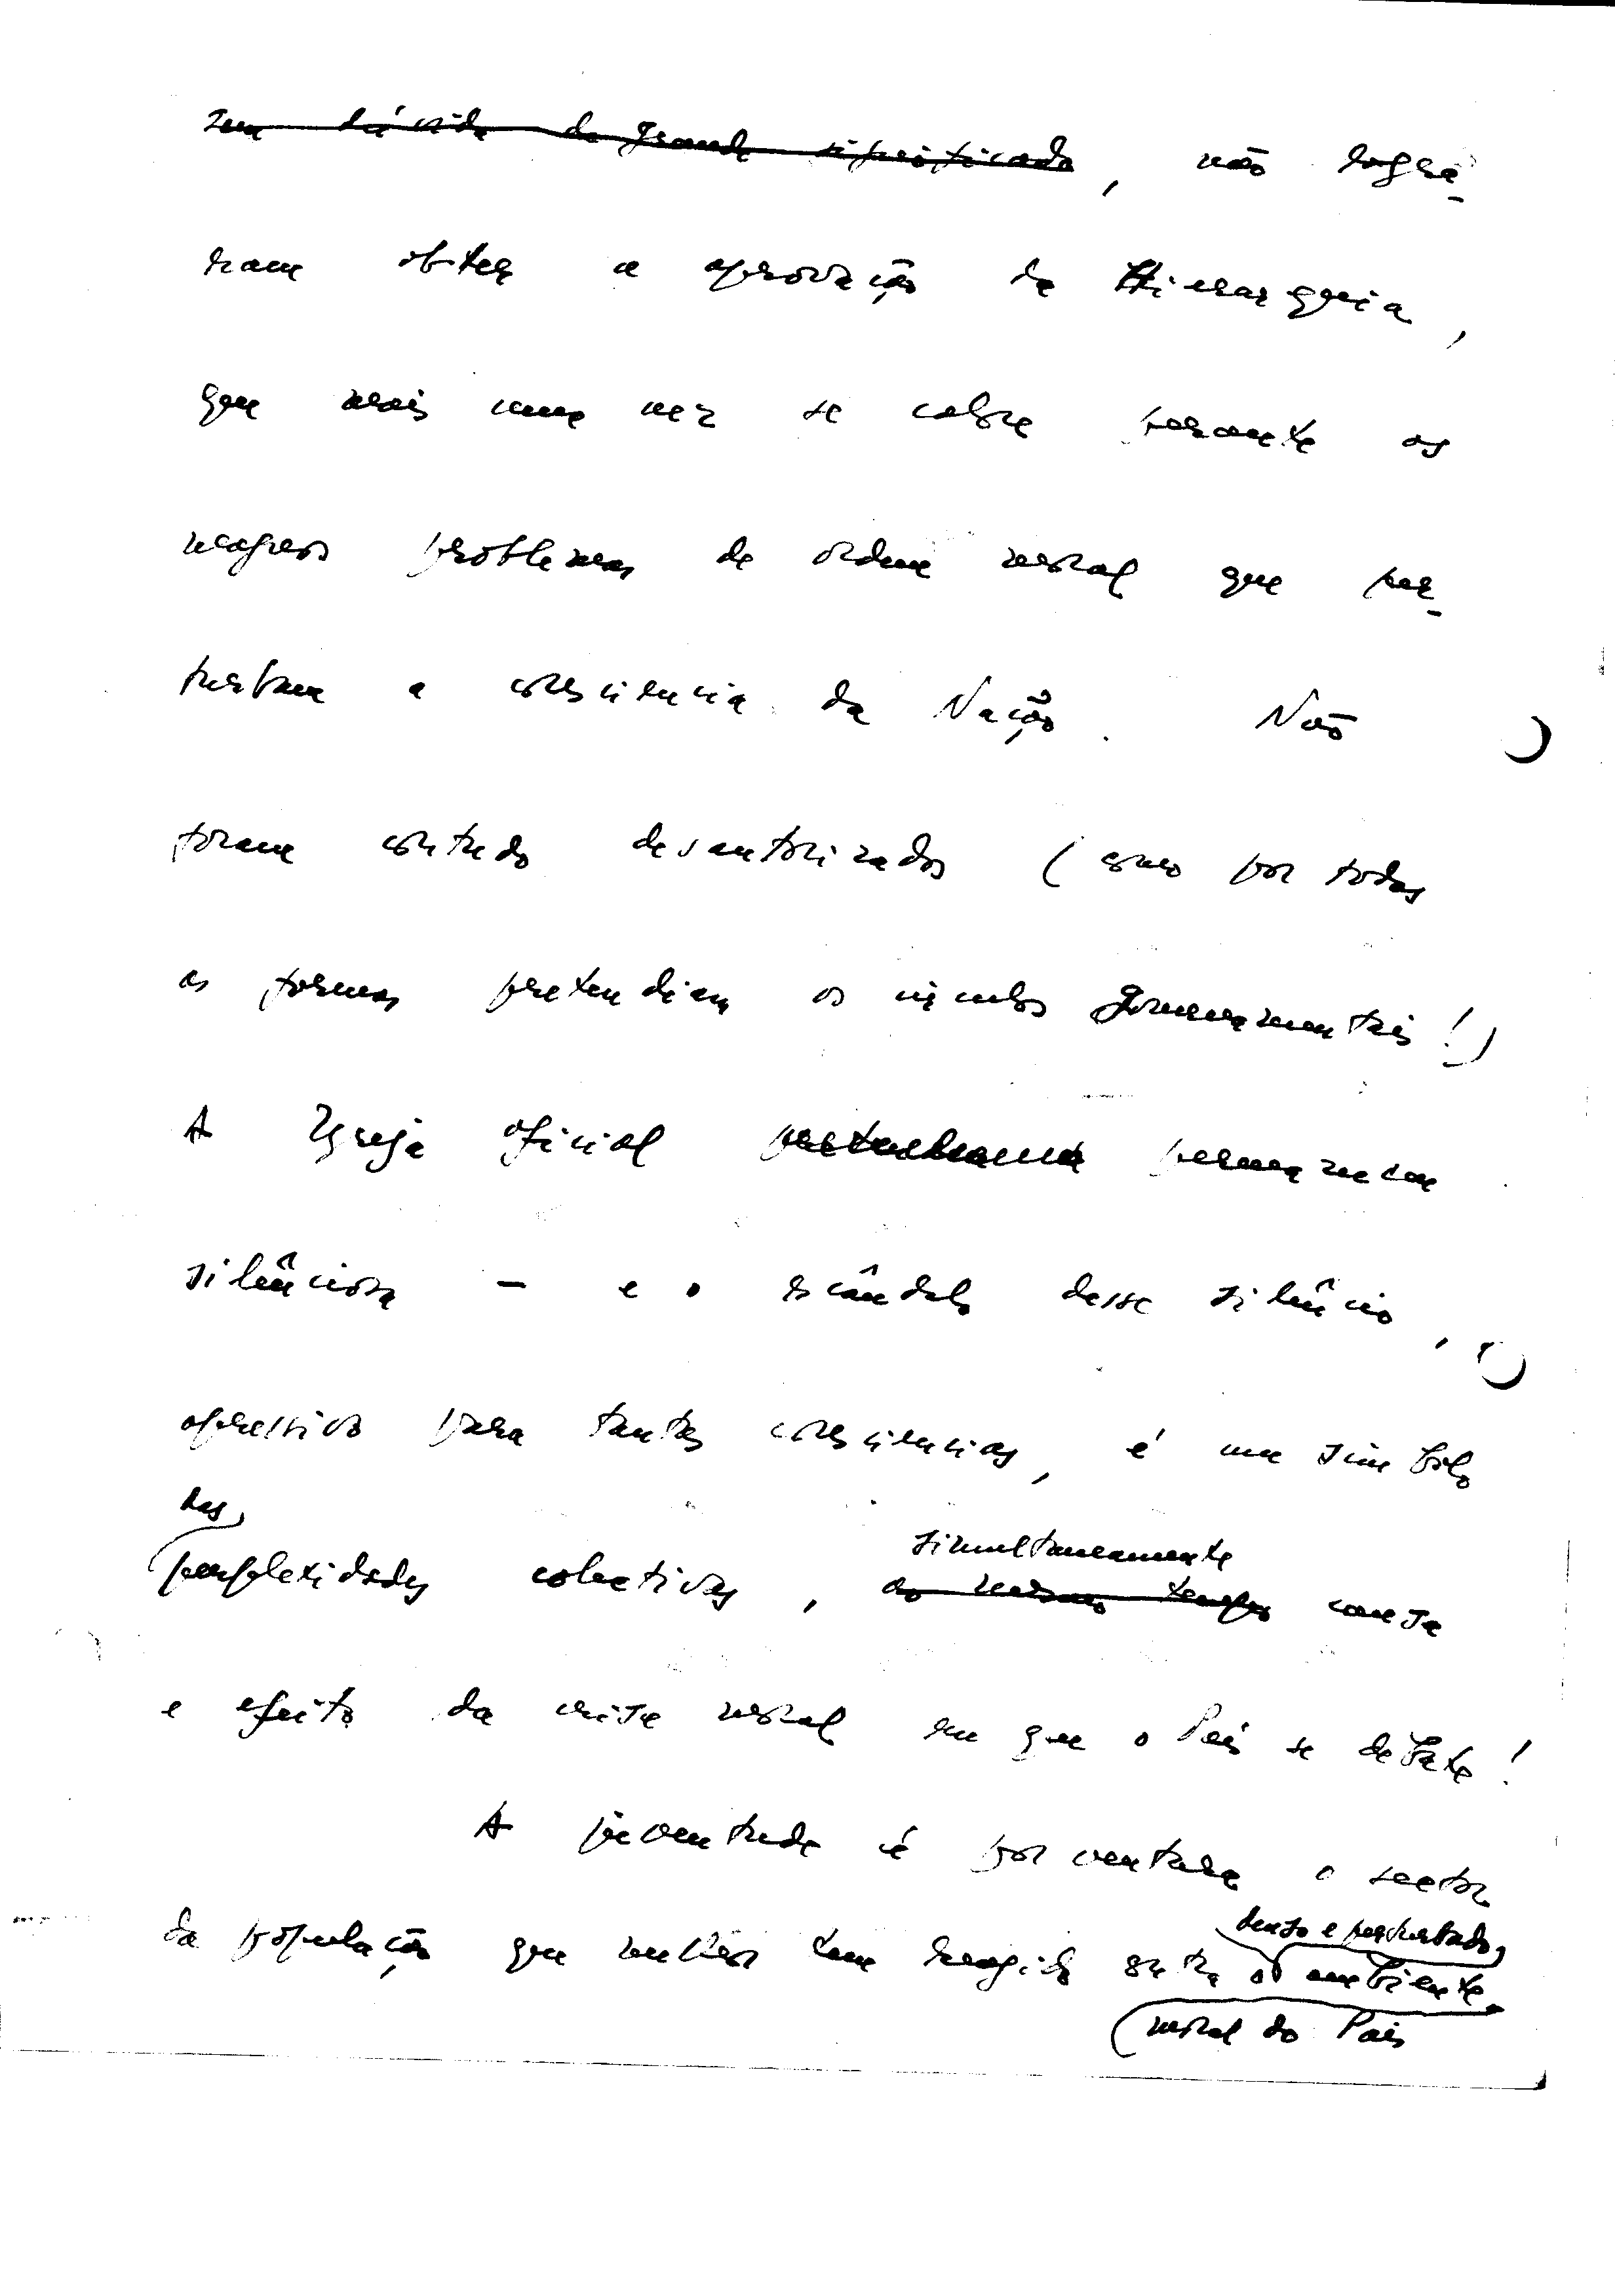 sem dúvida de grande significado, não logra-
ram obter a aprovação da Hierarquia,
que mais uma vez se cala perante os
magnos problemas de ordem moral que per-
turbam a consciencia da Nação. Não
foram contudo desautorizados (como por todas
as formas pretendiam os circulos governamentais!)
A Igreja oficial permaneceu
silênciosa - e o escândalo desse silêncio,
opressivo para tantas consciencias, é um simbolo
das
perplexidades colectivas, ao mesmo tempo causa
simultaneamente
e efeito da crise moral em que o País se debate!
A juventude é porventura o sector
da população que melhor tem reagido contra o ambiente
tenso e perturbado,
moral do País